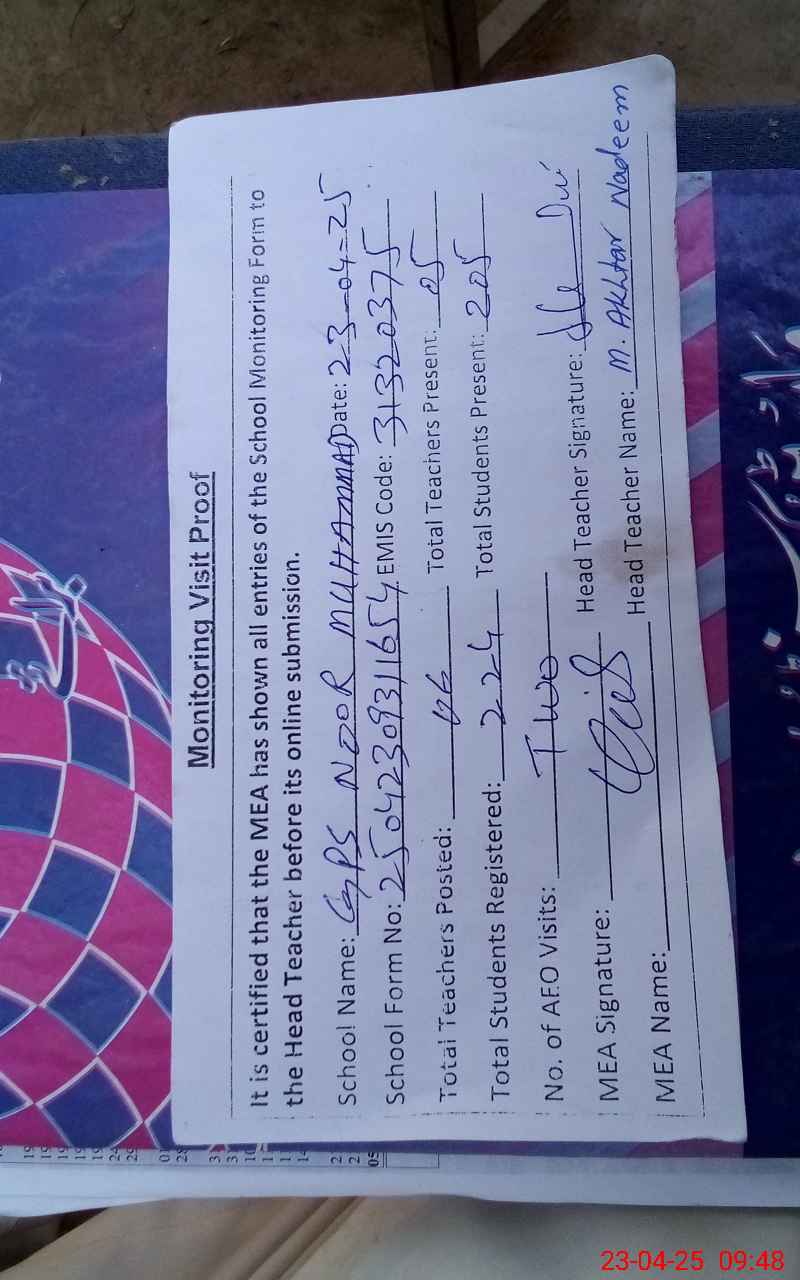 Monitoring Visit Proof
It is certified that the MEA has shown all entries of the School Monitoring Form to
the Head Teacher before its online submission.
School Name: GPS NOOR MUHAMMAD Date: 23-04-25
School Form No: 25042309311654 EMIS Code: 31320375
Total Teachers Posted: 06 Total Teachers Present: 05
Total Students Registered: 224 Total Students Present: 205
No. of AEO Visits: Two
MEA Signature: Head Teacher Signature:
MEA Name: Head Teacher Name: M. Akhtar Nadeem
23-04-25 09:48